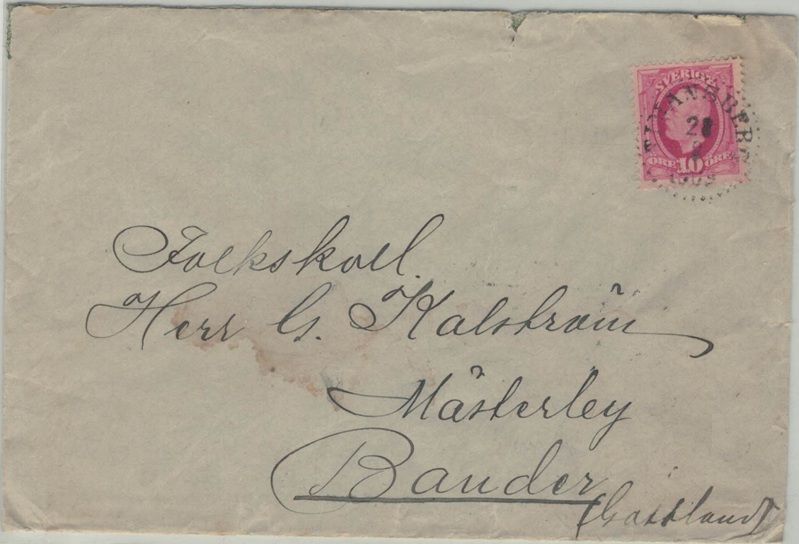 SVERIGE
ÖRE 10 ÖRE
28
Folkskoll.
Herr G. Kalström
Mästerley
Bander
(Gottland)